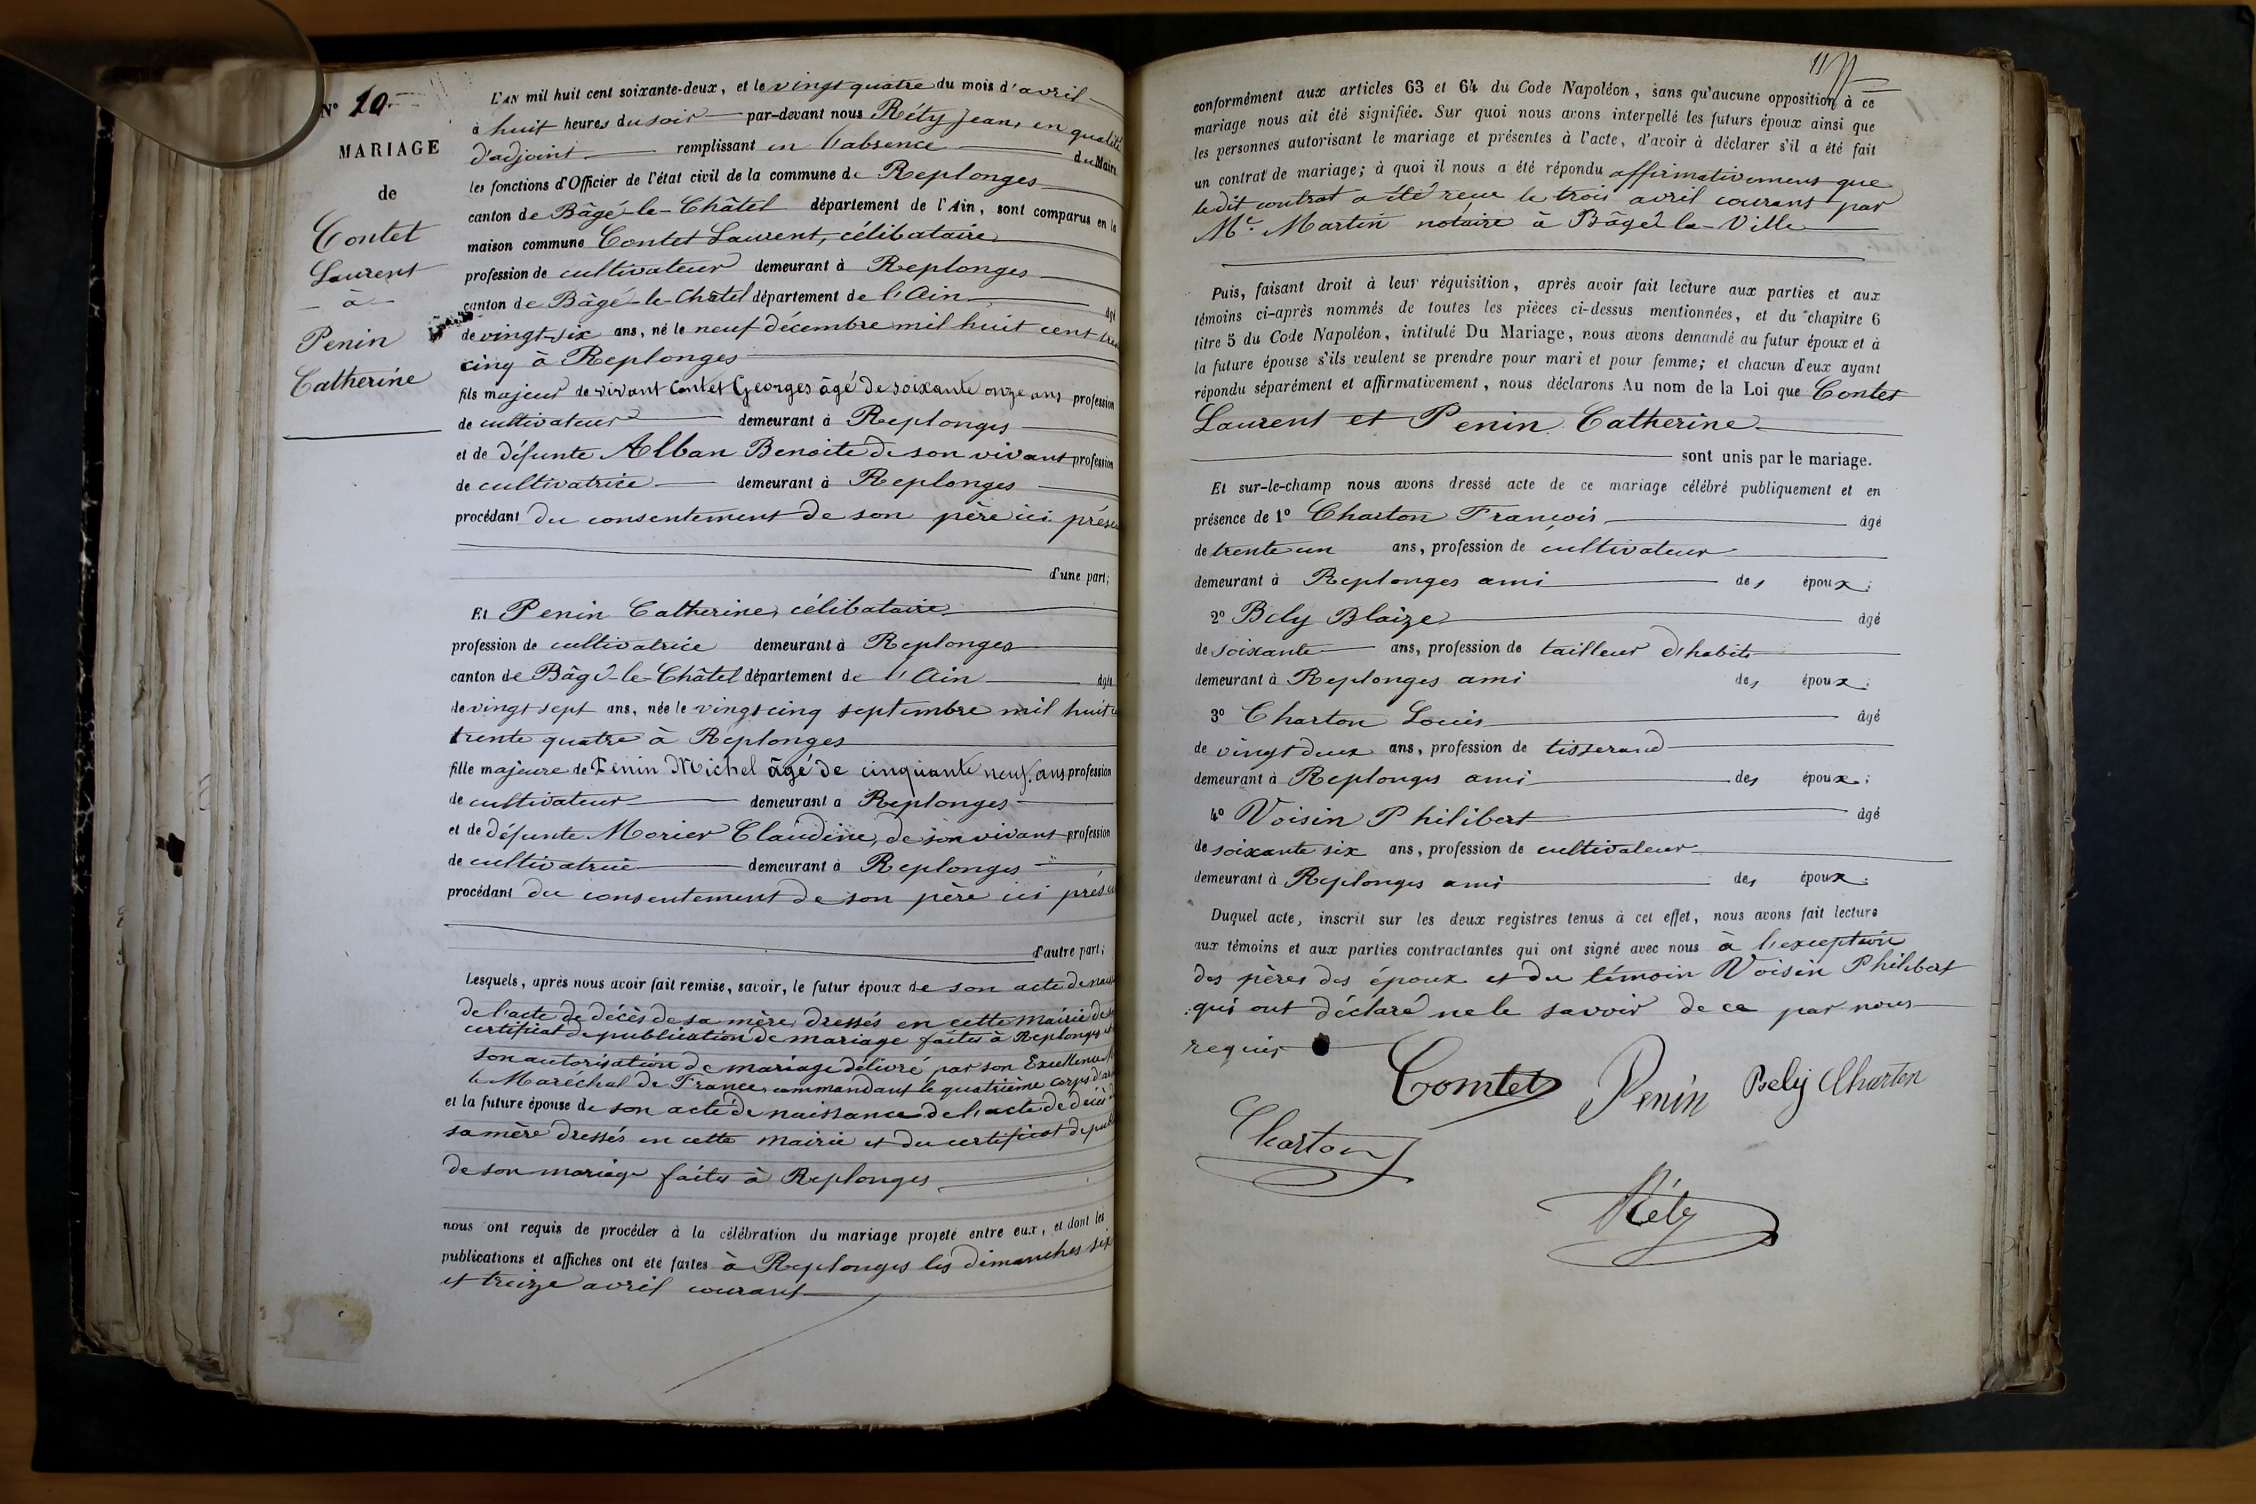 N° 10.
MARIAGE
de
Contet
Laurent
- à -
Penin
Catherine
L'AN mil huit cent soixante-deux, et le vingt quatre du mois d'avril
à huit heures du soir par-devant nous Réty Jean, en qualité
d'adjoint remplissant en l'absence du Maire
les fonctions d'Officier de l'état civil de la commune de Replonges
canton de Bâgé-le-Châtel département de l'Ain, sont comparus en la
maison commune Contet Laurent, célibataire
profession de cultivateur demeurant à Replonges
canton de Bâgé-le-Châtel département de l'Ain âgé
de vingt-six ans, né le neuf décembre mil huit cent
cinq à Replonges
fils majeur de vivant Contet Georges âgé de soixante onze ans profession
de cultivateur demeurant à Replonges
et de défunte Alban Benoite de son vivant profession
de cultivatrice demeurant à Replonges
procédant du consentement de son père ici
d'une part;
Et Penin Catherine, célibataire
profession de cultivatrice demeurant à Replonges
canton de Bâgé-le-Châtel département de l'Ain âgée
de vingt sept ans, née le vingt cinq septembre mil huit
trente quatre à Replonges
fille majeure de Penin Michel âgé de cinquante neuf ans profession
de cultivateur demeurant à Replonges
et de défunte Morier Claudine, de son vivant profession
de cultivatrice demeurant à Replonges
procédant du consentement de son père ici
d'autre part;
Lesquels, après nous avoir fait remise, savoir, le futur époux de son acte de
de l'acte de décès de sa mère, dressés en cette Mairie
certificat de publication de mariage faites à Replonges et
son autorisation de mariage délivré par son Excellence
le Maréchal de France, commandant le quatrième corps
et la future épouse de son acte de naissance de l'acte de décès
sa mère dressés en cette Mairie et du certificat de
de son mariage faites à Replonges
nous ont requis de procéder à la célébration du mariage projeté entre eux, et dont les
publications et affiches ont été faites à Replonges les dimanches six
et treize avril courant
11
conformément aux articles 63 et 64 du Code Napoléon, sans qu'aucune opposition à ce
mariage nous ait été signifiée. Sur quoi nous avons interpellé les futurs époux ainsi que
les personnes autorisant le mariage et présentes à l'acte, d'avoir à déclarer s'il a été fait
un contrat de mariage; à quoi il nous a été répondu affirmativement que
le dit contrat a été reçu le trois avril courant par
Me. Martin notaire à Bâgé-la-Ville
Puis, faisant droit à leur réquisition, après avoir fait lecture aux parties et aux
témoins ci-après nommés de toutes les pièces ci-dessus mentionnées, et du chapitre 6
titre 5 du Code Napoléon, intitulé Du Mariage, nous avons demandé au futur époux et à
la future épouse s'ils veulent se prendre pour mari et pour femme; et chacun d'eux ayant
répondu séparément et affirmativement, nous déclarons Au nom de la Loi que Contet
Laurent et Penin Catherine
sont unis par le mariage.
Et sur-le-champ nous avons dressé acte de ce mariage célébré publiquement et en
présence de 1° Charton François âgé
de trente un ans, profession de cultivateur
demeurant à Replonges ami des époux;
2° Bely Blaize âgé
de soixante ans, profession de tailleur d'habits
demeurant à Replonges ami des époux;
3° Charton Louis âgé
de vingt deux ans, profession de tisserand
demeurant à Replonges ami des époux;
4° Voisin Philibert âgé
de soixante six ans, profession de cultivateur
demeurant à Replonges ami des époux.
Duquel acte, inscrit sur les deux registres tenus à cet effet, nous avons fait lecture
aux témoins et aux parties contractantes qui ont signé avec nous à l'exception
des pères des époux et du témoin Voisin Philibert
qui ont déclaré ne le savoir de ce par nous
requis
Comtet Penin Bely Charton
Charton
Réty